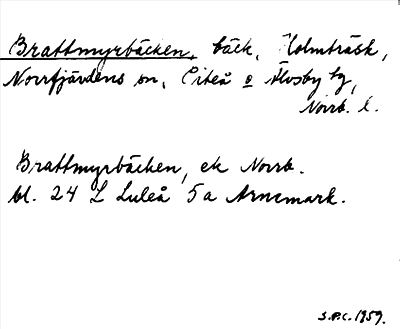 Brattmyrbäcken, bäck, Holmträsk,
Norrfjärdens sn, Piteå o Älvsby tg,
Norrb. l.
Brattmyrbäcken, ek Norrb.
bl. 24 L Luleå 5a Arnemark.
S.P.C. 1959.